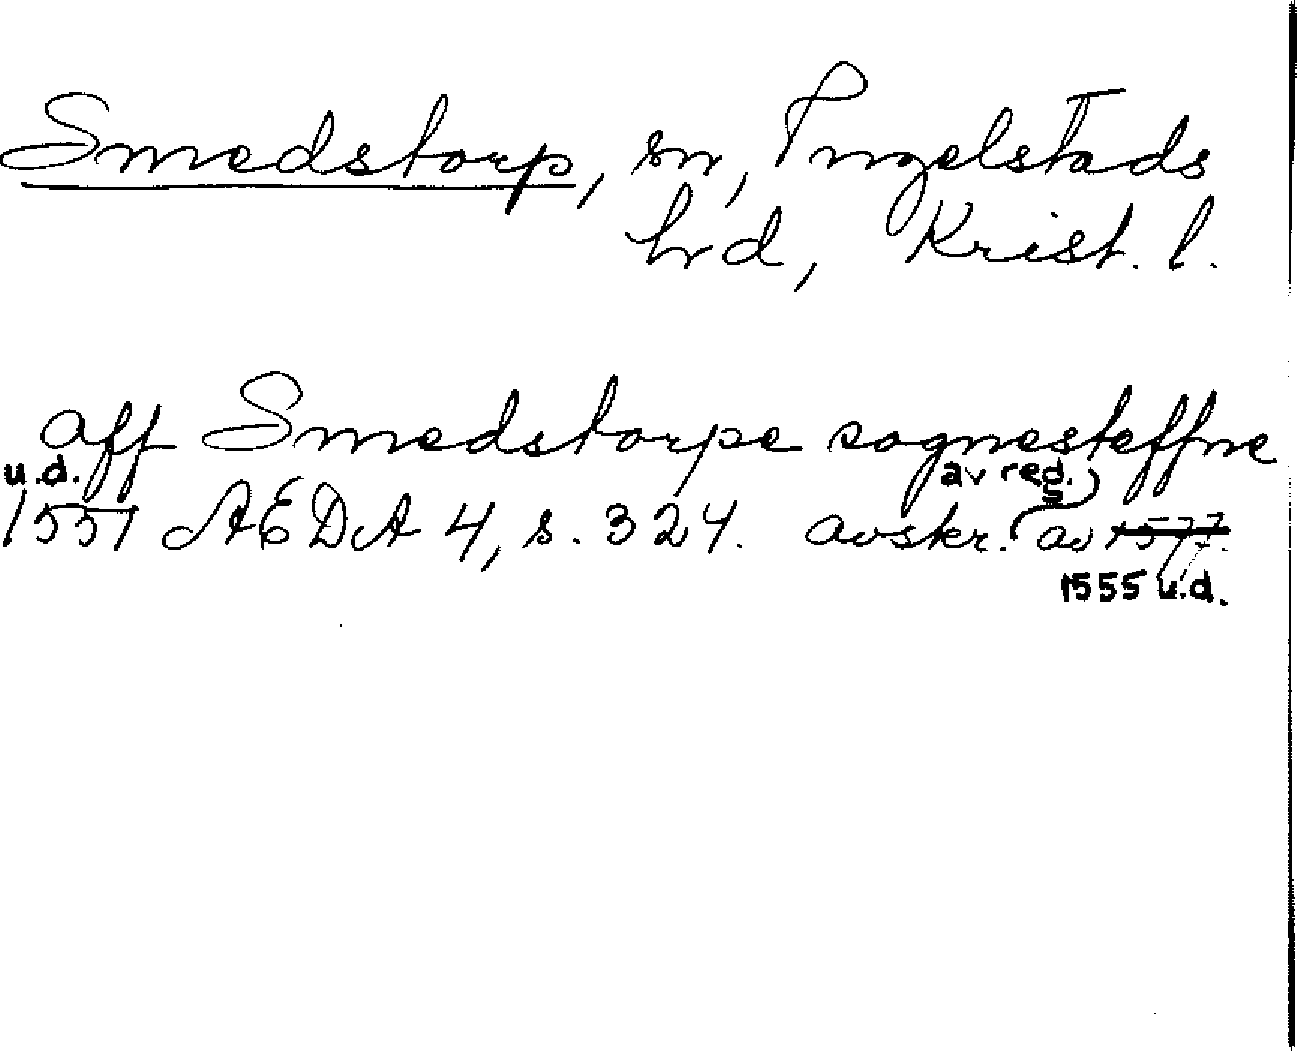 Smedstorp, sn, Ingelstads
hrd, Krist. l.
aff Smedstorpe sognesteffne
u.d. av red.
1551 AEDA 4, s. 324. avskr. av 1577.
1555 u.d.